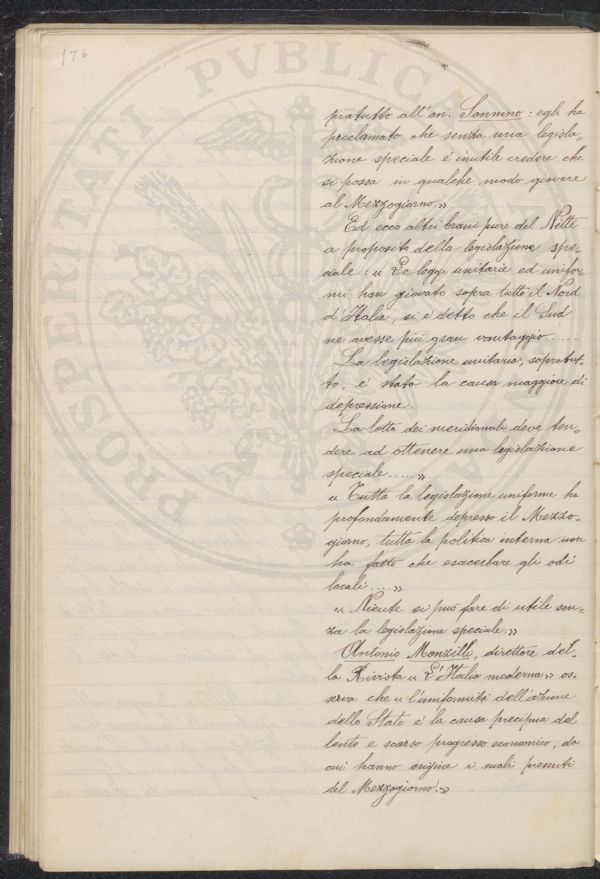 176
pratutto all'on. Sonnino: egli ha
proclamato che senza una legisla-
zione speciale é inutile credere che
si possa in qualche modo giovare
al Mezzogiorno."
Ed ecco altri brani pure del Nitti
a proposito della legislazione spe-
ciale: "Le leggi unitarie ed unifor-
mi han giovato sopra tutto il Nord
d'Italia, si é detto che il Sud
ne avesse più gran vantaggio......
La legislazione unitaria, sopratut-
to, é stata la causa maggiore di
depressione.
La lotta dei meridionali deve ten-
dere ad ottenere una legislazione
speciale....."
"Tutta la legislazione uniforme ha
profondamente depresso il Mezzo-
giorno, tutta la politica interna non
ha fatto che esacerbare gli odi
locali...."
"Niente si può fare di utile sen-
za la legislazione speciale."
Antonio Monzilli, direttore del-
la Rivista "L'Italia moderna" os-
serva che "l'uniformità dell'azione
dello Stato é la causa precipua del
lento e scarso progresso economico, da
cui hanno origine i mali presenti
del Mezzogiorno."
PROSPERITATI PVBLICAE